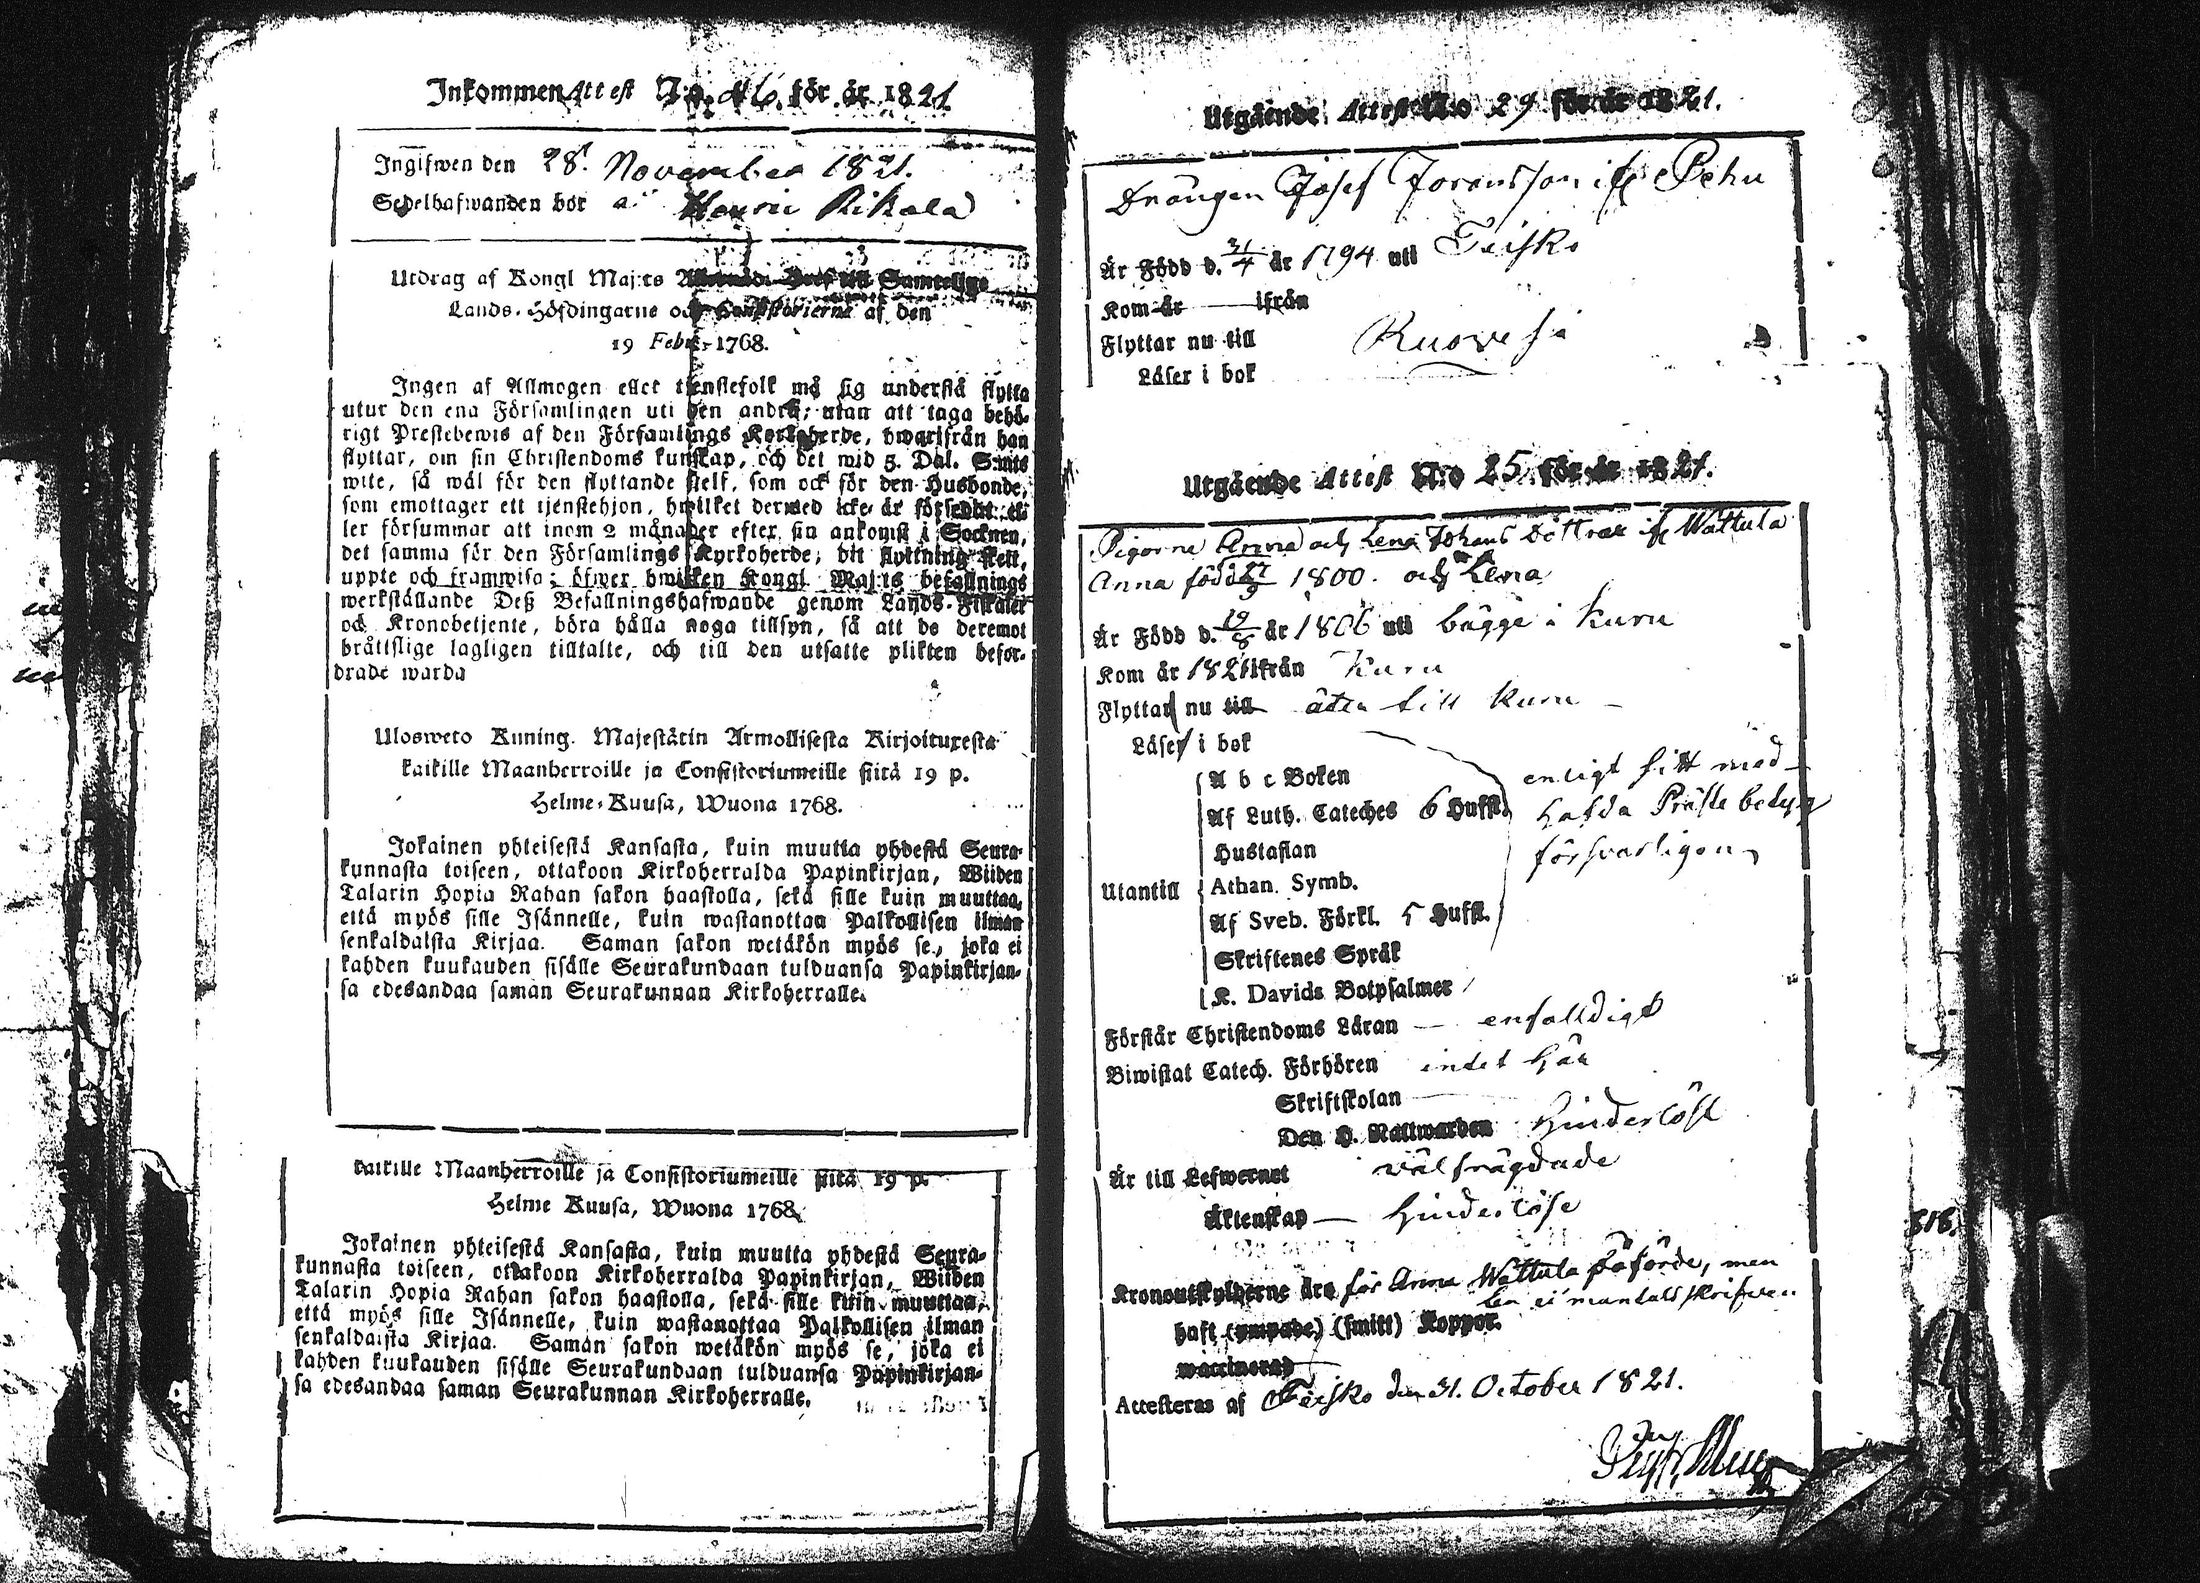 Inkommen Attest N:o 46. för år 1821.
Ingifwen den 28. November 1821.
Sedelhafwanden bor Rikala
Utdrag af Kongl Maj:ts Allernåd. Bref till Samtelige
Lands-Höfdingarne och Consistorierne af den
19 Febr. 1768.
Ingen af Allmogen eller tienstefolk må sig understå flytta
utur den ena Församlingen uti den andra, utan att taga behö-
rigt Prestebewis af den Församlings Kyrkoherde, hwarifrån han
flyttar, om sin Christendoms kunskap, och det wid 5. Dal. S:mts
wite, så wäl för den flyttande sielf, som ock för den Husbonde,
som emottager ett tjenstehjon, hwilket dermed icke är försedt el-
ler försummar att inom 2 månader efter sin ankomst i Socknen,
det samma för den Församlings Kyrkoherde, dit flyttning skett,
uppte och framwisa; öfwer hwilken Kongl Maj:ts befallnings
werkställande Deß Befallningshafwande genom Lands-Fiskaler
och Kronobetjente, böra hålla noga tillsyn, så att de deremot
bråttslige lagligen tilltalte, och till den utsatte plikten befor-
drade warda
Ulosweto Kuning. Majestätin Armollisesta Kirjoituxesta
kaikille Maanherroille ja Consistoriumeille siitä 19 p.
Helme-Kuusa, Wuona 1768.
Jokainen yhteisestä Kansasta, kuin muutta yhdestä Seura-
kunnasta toiseen, ottakoon Kirkoherralda Papinkirjan, Wiiden
Talarin Hopia Rahan sakon haastolla, sekä sille kuin muuttaa,
että myös sille Isännelle, kuin wastanottaa Palkollisen ilman
senkaldaista Kirjaa. Saman sakon wetäkön myös se, joka ei
kahden kuukauden sisälle Seurakundaan tulduansa Papinkirjan-
sa edesandaa saman Seurakunnan Kirkoherralle.
kaikille Maanherroille ja Consistoriumeille siitä 19 p.
Helme Kuusa, Wuona 1768.
Jokainen yhteisestä Kansasta, kuin muutta yhdestä Seura-
kunnasta toiseen, ottakoon Kirkoherralda Papinkirjan, Wiiden
Talarin Hopia Rahan sakon haastolla, sekä sille kuin muuttaa,
että myös sille Isännelle, kuin wastanottaa Palkollisen ilman
senkaldaista Kirjaa. Saman sakon wetäkön myös se, joka ei
kahden kuukauden sisälle Seurakundaan tulduansa Papinkirjan-
sa edesandaa saman Seurakunnan Kirkoherralle.
Utgående Attest N:o 29 för år 1821.
Drängen Josef ifr Pehu
Är Född d. 21/4 år 1794 uti Teisko
Kom år — ifrån
Flyttar nu till Ruovesi
Läser i bok
Utgående Attest N:o 25 för år 1821.
Pigorne Anna och Lena Johans Döttrar ifr Wattula
Anna född 1800. och Lena
Är Född d. 19/8 år 1806 uti bägge i Kuru
Kom år 1821 ifrån Kuru
Flyttar nu till åter till Kuru
Läser i bok
A b c Boken enligt sitt med-
Af Luth. Cateches 6 Hufst. hafda Präste betyg
Hustaflan försvarligen
Utantill Athan. Symb.
Af Sveb. Förkl. 5 Hufst.
Skriftenes Språk
K. Davids Botpsalmer
Förstår Christendoms Läran — enfalldigt
Biwistat Catech. Förhören intet här
Skriftskolan
Den H. Nattwarden hinderlöst
Är till Lefwernet välfrägdade
Äktenskap — hinderlöse
Kronoutskylderne äro för Anna Wattula påförde, men
Lena ei mantalsskrifven
haft (ympade) (smitt) Koppor.
waccinerad
Attesteras af Teisko den 31. October 1821.
318.